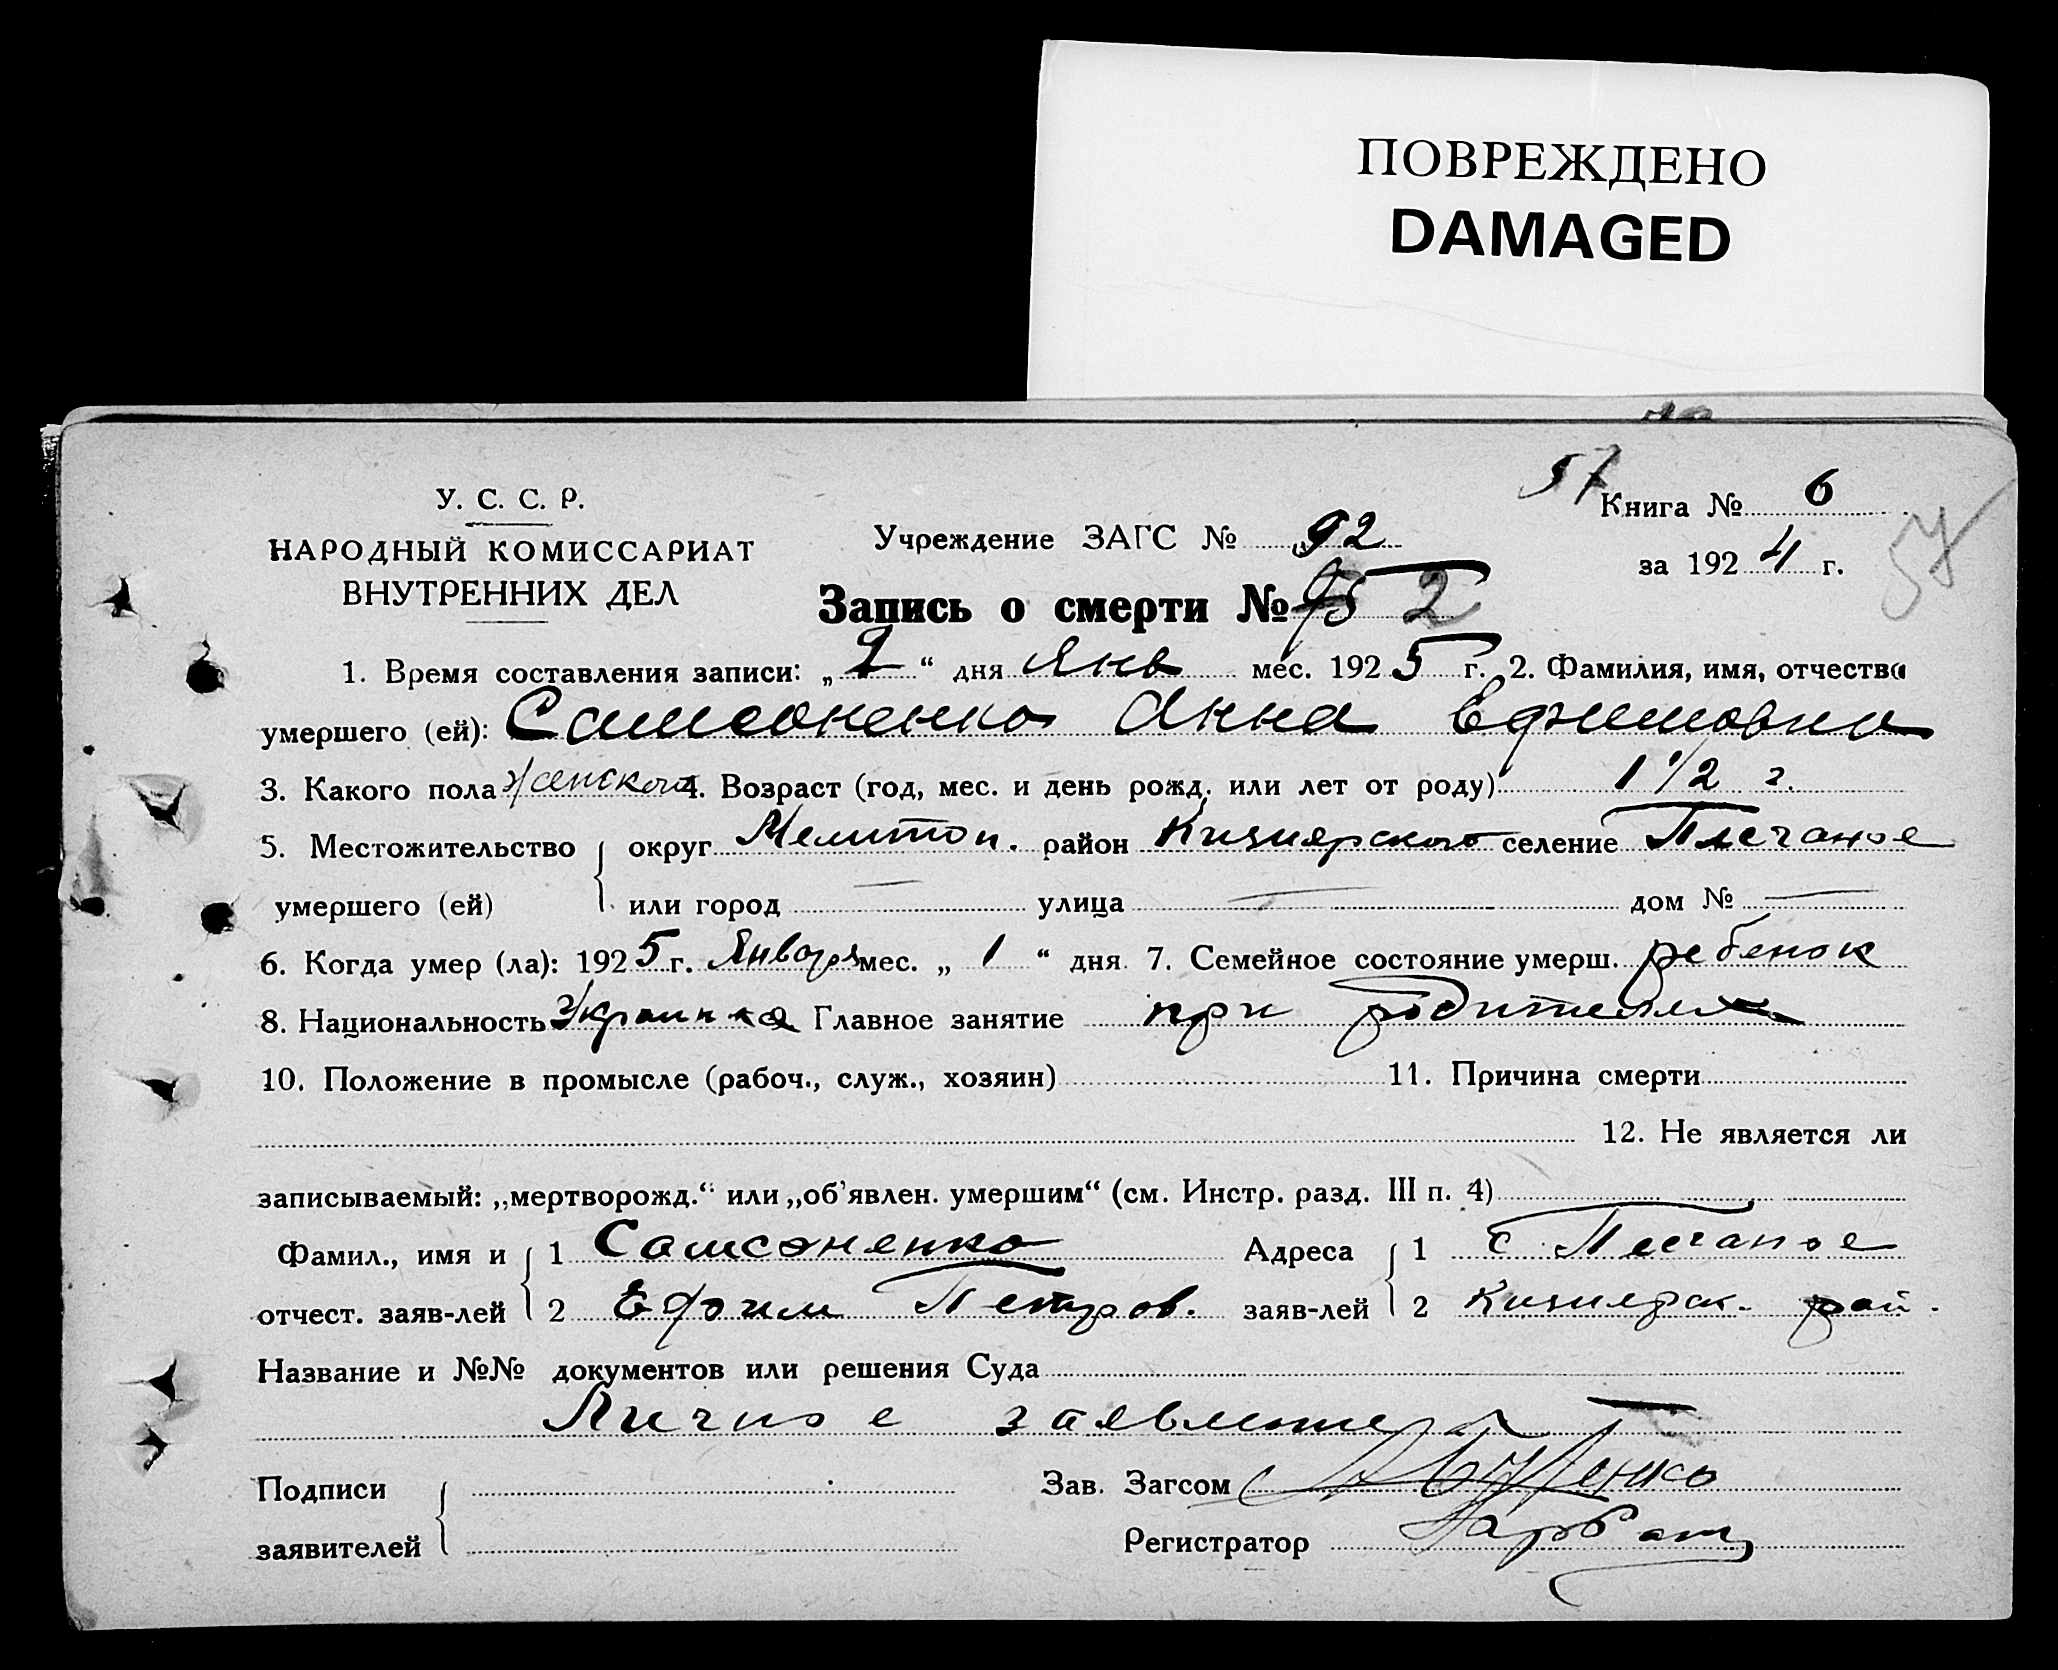 ПОВРЕЖДЕНО
DAMAGED
57
Книга № 6
за 1924 г.
57
У. С. С. Р.
НАРОДНЫЙ КОМИССАРИАТ
ВНУТРЕННИХ ДЕЛ
Учреждение ЗАГС № 92
Запись о смерти № 2
1. Время составления записи: „ 2 “ дня Янв мес. 1925 г. 2. Фамилия, имя, отчество
умершего (ей): Самсоненко Анна Ефимовна
3. Какого пола женского 4. Возраст (год, мес. и день рожд. или лет от роду) 1 1/2 г.
5. Местожительство округ Мелитоп. район Кизиярского селение Песчаное
умершего (ей) или город — улица — дом № —
6. Когда умер (ла): 1925 г. Января мес. „ 1 “ дня 7. Семейное состояние умерш. ребенок
8. Национальность Украинка Главное занятие при родителях
10. Положение в промысле (рабоч., служ., хозяин) 11. Причина смерти
12. Не является ли
записываемый: „мертворожд.“ или „об'явлен. умершим“ (см. Инстр. разд. III п. 4)
Фамил., имя и 1 Самсоненко Адреса 1 с Песчаное
отчест. заяв-лей 2 Ефим Петров. заяв-лей 2 Кизиярск. рай.
Название и №№ документов или решения Суда
Личное заявление
Подписи Зав. Загсом
заявителей Регистратор